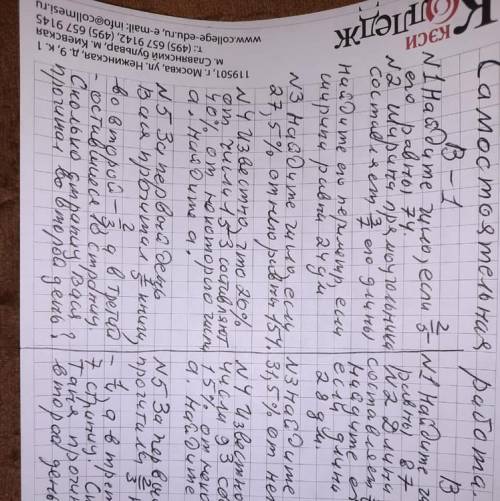 КЭСИ
КОЛЛЕДЖ
119501, г. Москва, ул. Нежинская, д. 9, к. 1
м. Славянский бульвар, м. Киевская
т.: (495) 657 9142, (495) 657 9145
www.college-edu.ru, e-mail: info@collmesi.ru
Самостоятельная работа
В - 1
N1 Найдите число, если
его равны 74.
N2 Ширина прямоугольника
составляет 3/7 его длины
Найдите его периметр, если
ширина равна 24 дм
N3 Найдите число, если
27,5% от него равны 154.
N4 Известно, что 20%
от числа 153 составляют
40% от некоторого числа
а. Найдите а.
N5 За первый день
Ваня прочитал книги,
во второй - 2/3, а в третий
- оставшиеся 18 страниц.
Сколько страниц Ваня
прочитал во второй день?
В
N1 Найдите
равны 87
N2 Длина
составляет
Найдите
если длин
28 дм.
N3 Найдите
31,5% от нег
N4 Известно
числа 93 со
15% от неко
а. Найдите
N5 За первы
прочитала 2/3
а в трет
7 страниц. Ск
Таня прочи
второй день